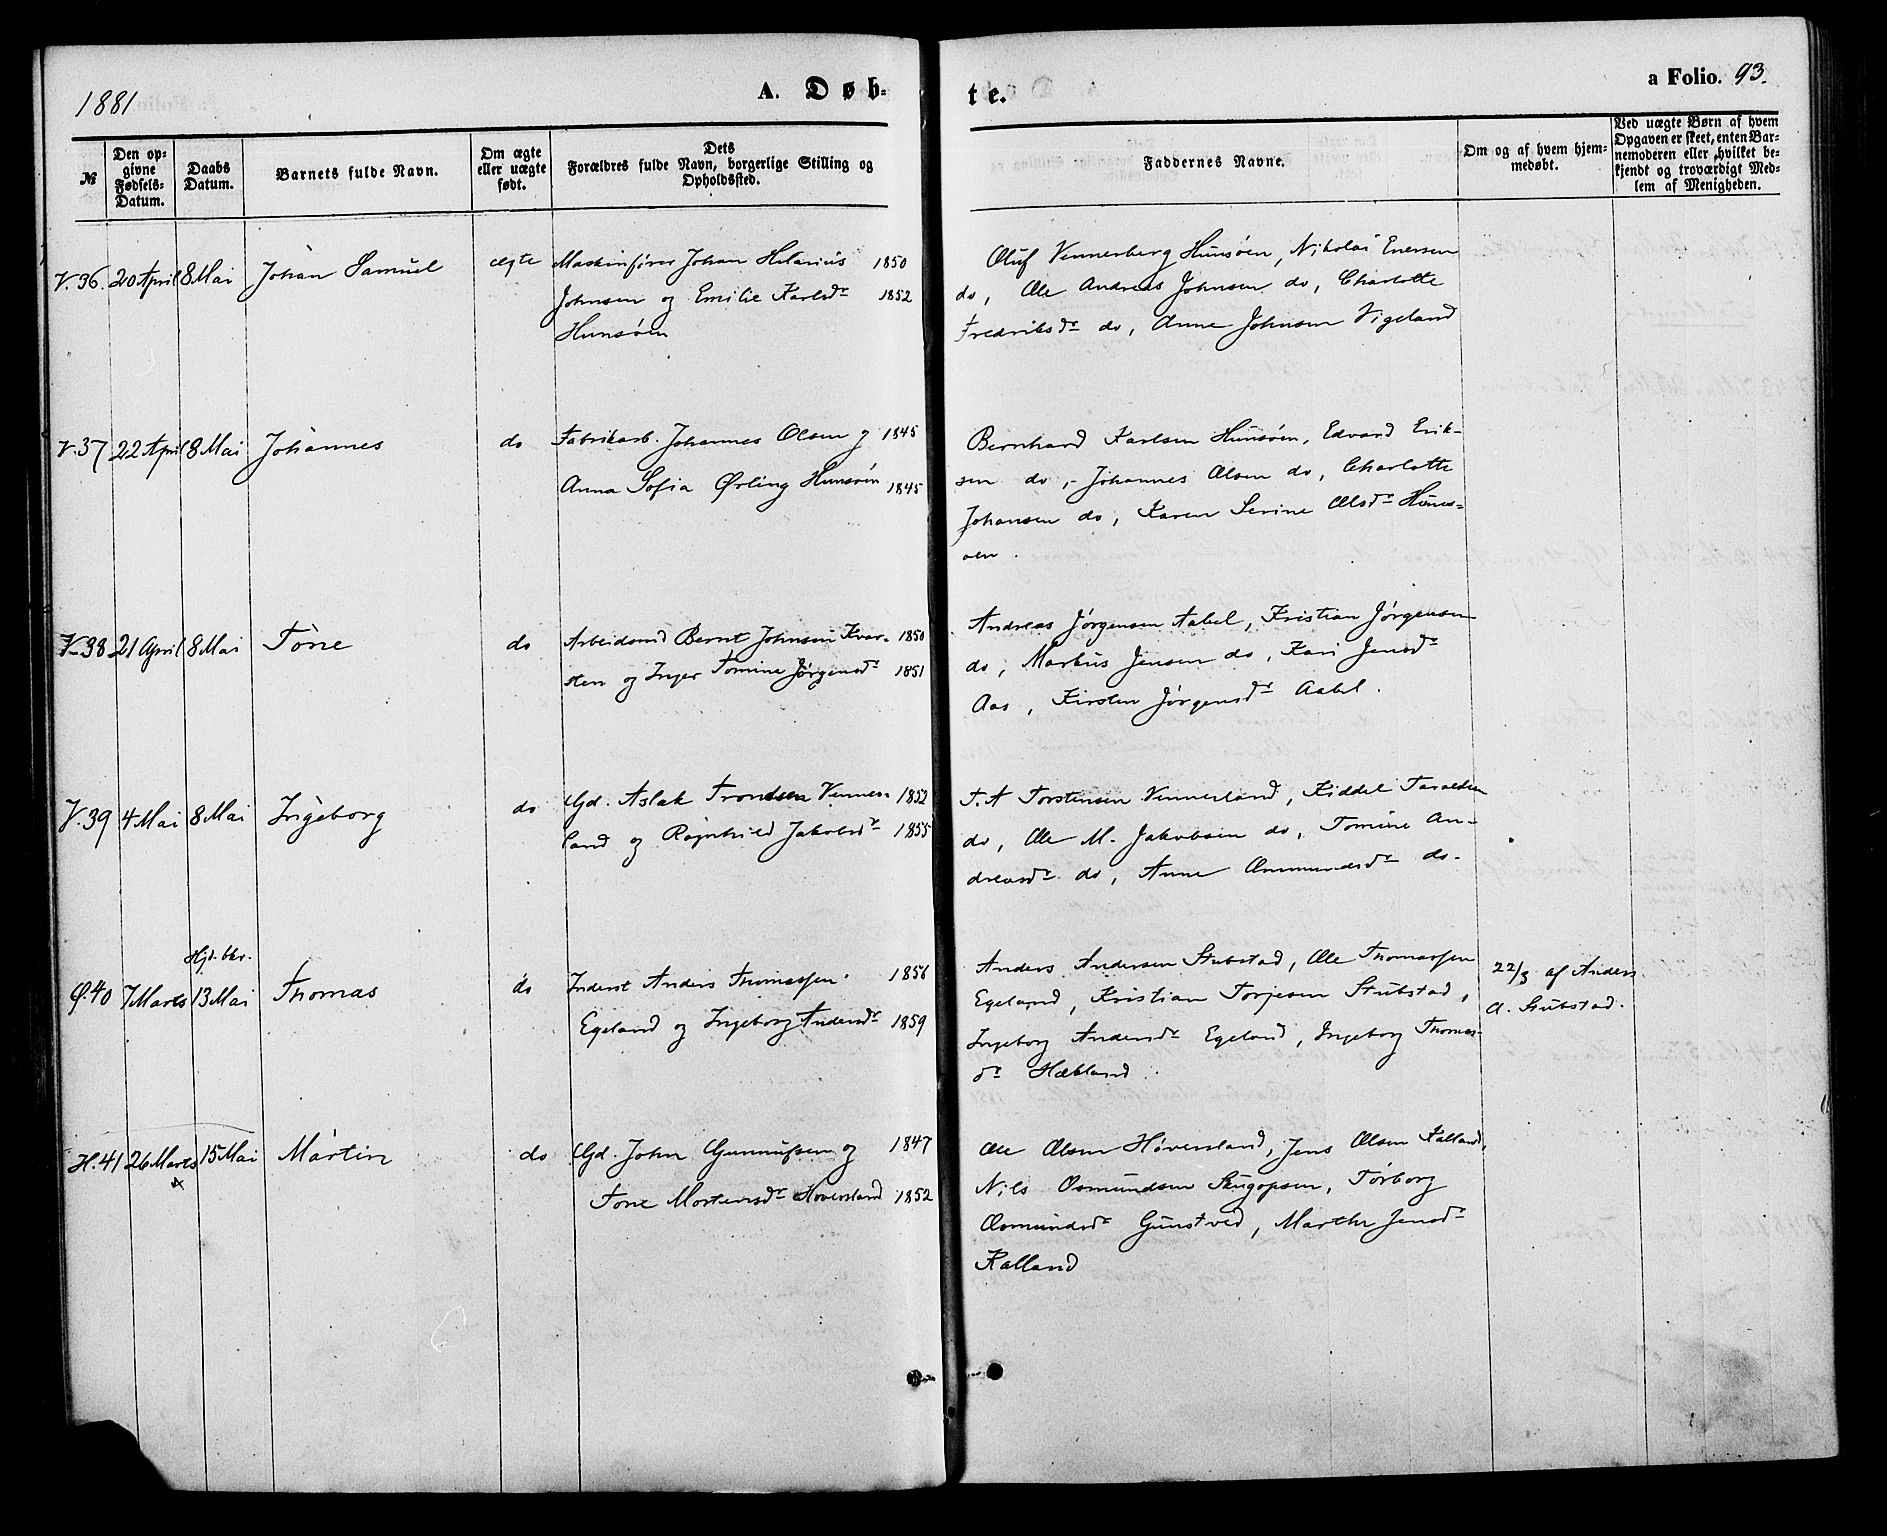 1881
A. Døb-
te.
a Folio. 93.
№
Den op-
givne
Fødsels-
Datum.
Daabs
Datum.
Barnets fulde Navn.
Om ægte
eller uægte
født.
Dets
Forældres fulde Navn, borgerlige Stilling og
Opholdssted.
Faddernes Navne.
Om og af hvem hjem-
medøbt.
Ved uægte Børn af hvem
Opgaven er skeet, enten Bar-
nemoderen eller hvilket be-
kjendt og troværdigt Med-
lem af Menigheden.
V.36. 20 April 8 Mai Johan Samuel ægte
Maskinfører Johan Hilarius 1850
Johnsen og Emilie Karlsdr 1852
Hunsøen
Oluf Vennerberg Hunsøen, Nikolai Enersen
do, Ole Andreas Johnsen do, Charlotte
Fredriksdr do, Anne Johnsen Vigeland
V.37 22 April 8 Mai Johannes do
Fabrikarb. Johannes Olsen og 1845
Anna Sofia Ørling Hunsøen 1845
Bernhard Karlsen Hunsøen, Edvard Erik-
sen do, Johannes Olsen do, Charlotte
Johansen do, Karen Serine Olsdr Huns-
øen.
V.38 21 April 8 Mai Tone do
Arbeidsmd Bernt Johnsen Kvar- 1850
sten og Inger Tomine Jørgensdr 1851
Andreas Jørgensen Aabel, Kristian Jørgensen
do, Markus Jensen do, Kari Jensdr
Aas, Kirsten Jørgensdr Aabel.
V.39 4 Mai 8 Mai Ingeborg do
Gd. Aslak Trondsen Vennes- 1852
land og Ragnhild Jakobsdr 1855
T. A Torstensen Vennesland, Kiddel Taraldsen
do, Ole M. Jakobsen do, Tomine An-
dreasdr do, Anne Ommundsdr do.
Hjd. bkr.
Ø.40 7 Marts 13 Mai Thomas do
Inderst Anders Thomassen 1856
Egeland og Ingeborg Andersdr 1859
Anders Andersen Stubstad, Ole Thomassen
Egeland, Kristian Torjesen Stubstad,
Ingeborg Andersdr Egeland, Ingeborg Thomas-
dr Hækland.
22/3 af Anders
A. Stubstad.
H.41 26 Marts 15 Mai Martin do
Gd. John Gunnufsen og 1847
Tone Mortensdr Høversland 1852
Ole Olsen Høversland, Jens Olsen Kalland,
Nils Osmundsen, Torborg
Osmundsdr Gunstved, Marthe Jensdr
Kalland